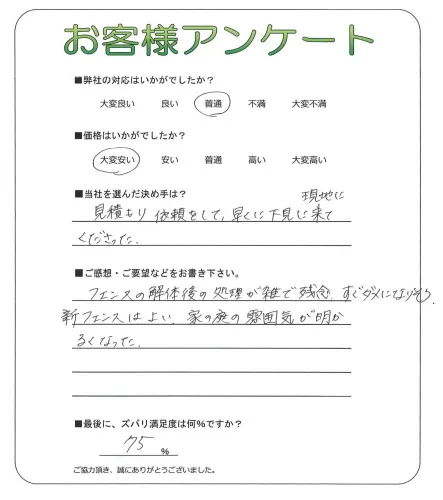 お客様アンケート
■弊社の対応はいかがでしたか?
大変良い 良い 普通 不満 大変不満
■価格はいかがでしたか?
大変安い 安い 普通 高い 大変高い
■当社を選んだ決め手は?
現地に
見積もり 依頼をして、早くに下見に来て
くださった.
■ご感想・ご要望などをお書き下さい。
フェンスの解体後の処理が雑で残念. すぐダメになりそう.
新フェンスはよい. 家の庭の雰囲気が明か
るくなった.
■最後に、ズバリ満足度は何%ですか?
75 %
ご協力頂き、誠にありがとうございました。